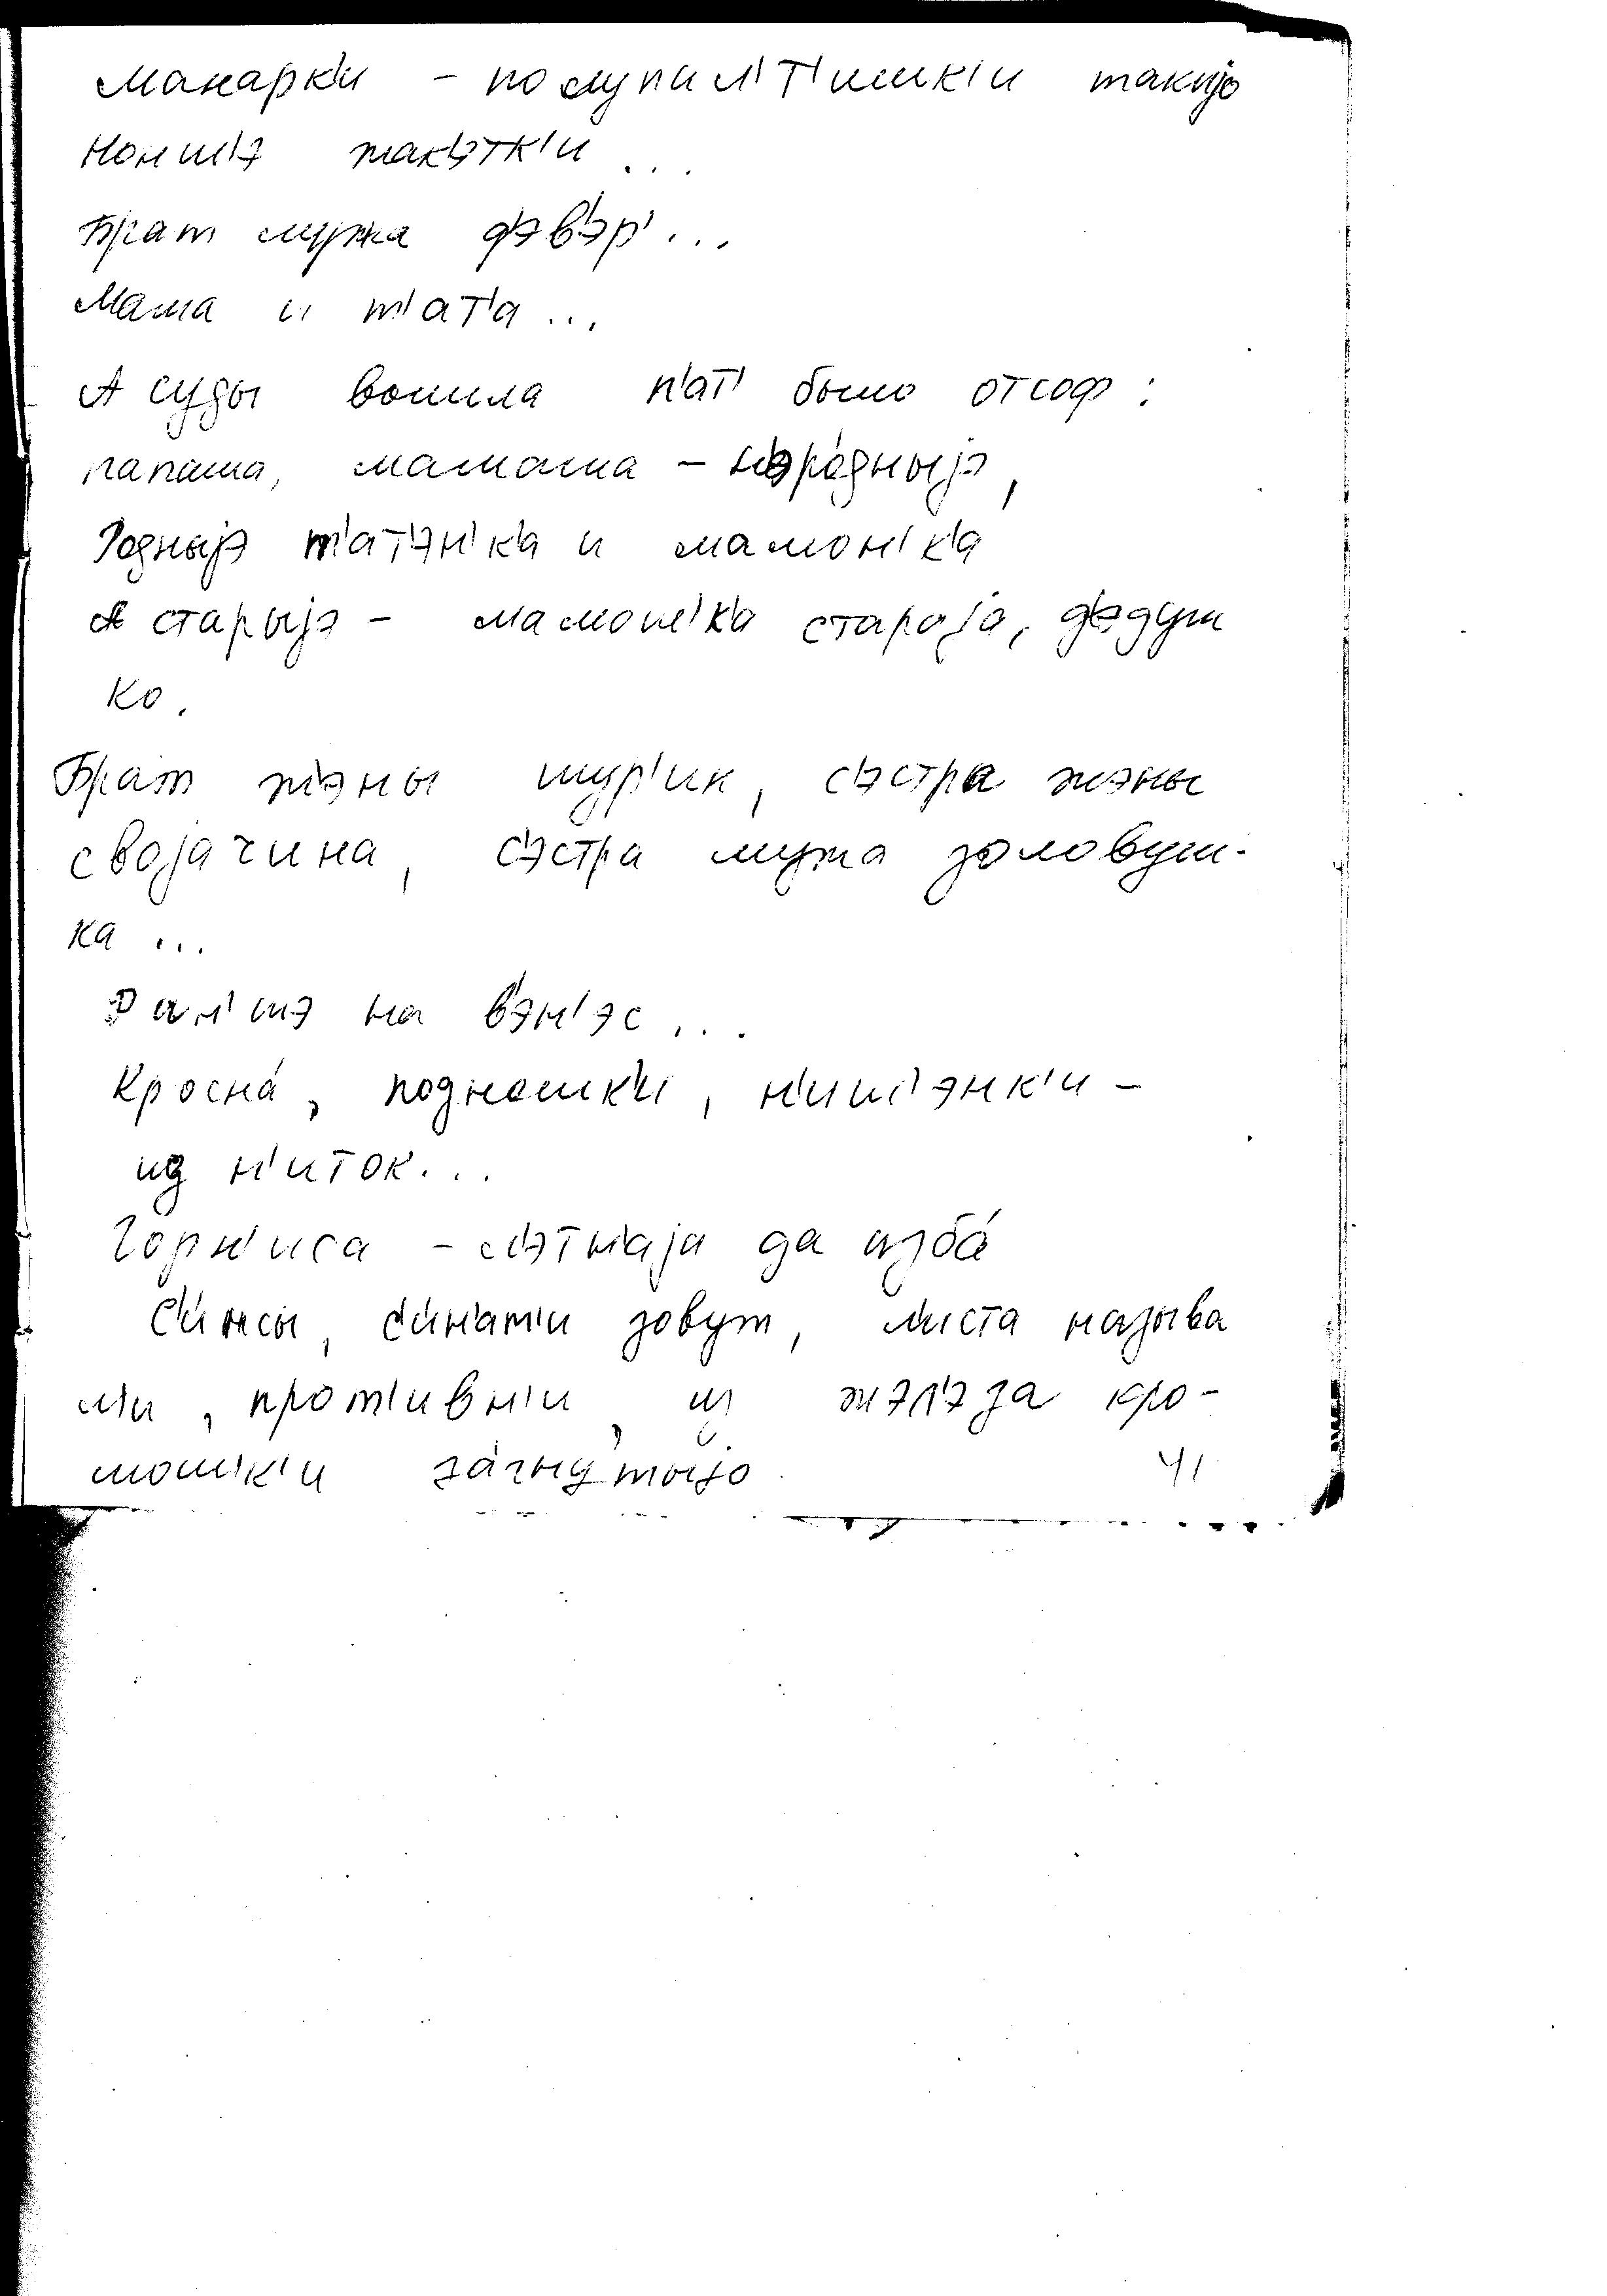 манарк'и – полупал'т'ишк'и такиjо
нонш'э жак'этк'и ...
Брат мужа д'эв'эр' ...
Мама и т'ат'а ...
А суды вошла п'ат' было отсоф :
папаша, мамаша – н'эро́дныjэ,
Родныjэ т'ат'эн'к'а и мамон'к'а
А старыjэ – мамон'к'а стараjа, д'эдуш
ко.
Брат жэны шур'ин, с'эстра жэны
своjачина, с'эстра мужа золовуш-
ка ...
Ран'шэ на в'эн'эс ...
Кросна́, подножк'и, н'ищ'энк'и –
из н'иток...
Горн'иса – л'этн'аjа да изба́
с'инсы, с'инат'и зовут, листа называ
л'и, прот'ивн'и, из жэл'эза кро-
мошк'и за́гнутыjо
41